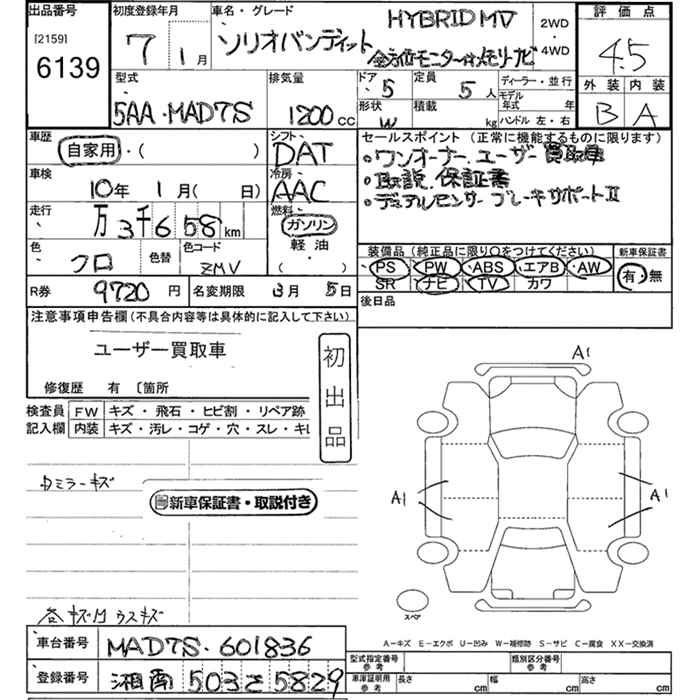 出品番号 初度登録年月 車名・グレード HYBRID MV 2WD・4WD 評価点
[2159]
6139 7 1月 ソリオバンディット 全方位モニター付メモリーナビ 4.5
型式 排気量 ドア 5 定員 5人 ディーラー・並行 外装 内装
モデル年式 年
5AA・MAD7S 1200cc 形状 W 積載 kg ハンドル 左・右 B A
車歴 シフト セールスポイント(正常に機能するものに限ります)
自家用・( ) DAT ・ワンオーナー、ユーザー買取車
車検 冷房 ・取説、保証書
10年 1月( 日) AAC ・デュアルセンサーブレーキサポートⅡ
走行 燃料
万3千658km ガソリン
軽油
色 色替 色コード ・
クロ ZMV ( )
装備品(純正品に限り○をつけてください) 新車保証書
PS PW ABS エアB AW 有・無
SR ナビ TV カワ
R券 9720円 名変期限 3月 5日 後日品
注意事項申告欄(不具合内容等は具体的に記入して下さい)
ユーザー買取車
初出品
修復歴 有 〔箇所
検査員記入欄 FW キズ・飛石・ヒビ割・リペア跡
内装 キズ・汚レ・コゲ・穴・スレ・キレ
A1
カミラーキズ
新車保証書・取説付き
A1 A1
スペア
ウスキズ
A-キズ E-エクボ U-凹み W-補修跡 S-サビ C-腐食 XX-交換済
車台番号 MAD7S-601836
型式指定番号 参考 類別区分番号 参考
登録番号 湘南 503 さ 5829
車庫証明用 参考 長さ cm 幅 cm 高さ cm